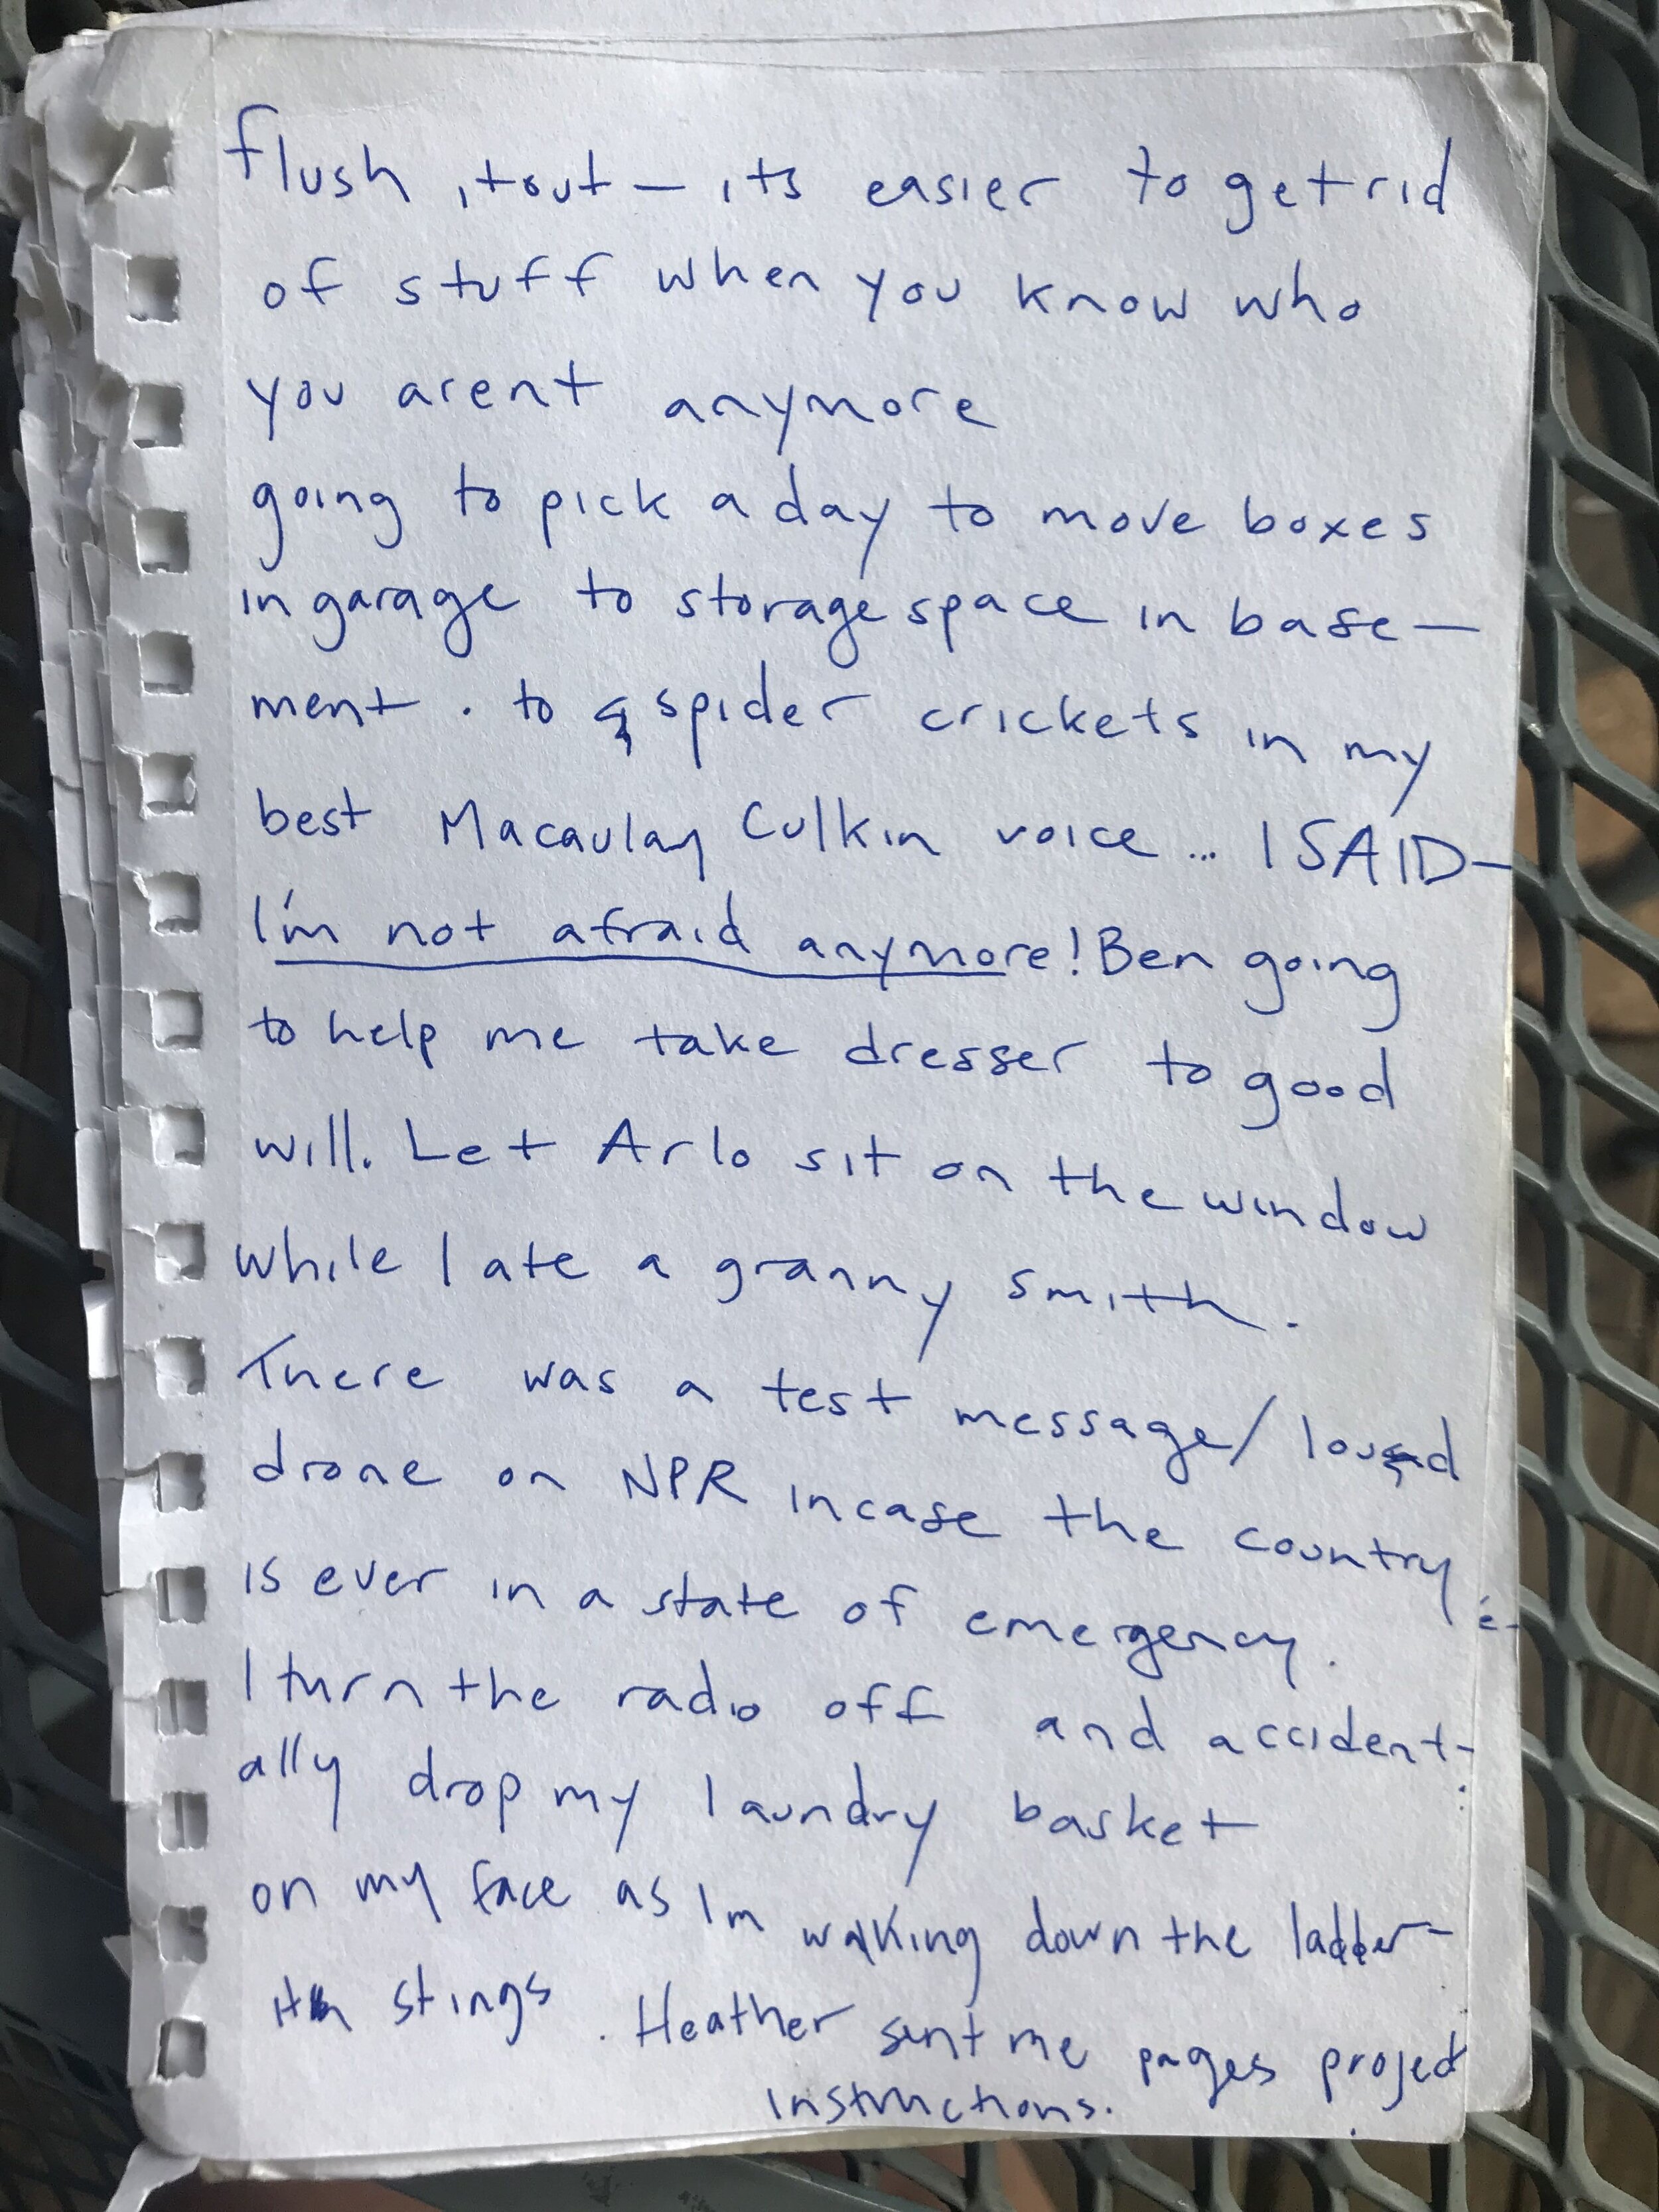 flush it out — its easier to get rid
of stuff when you know who
you arent anymore
going to pick a day to move boxes
in garage to storage space in base—
ment. to spider crickets in my
best Macaulay Culkin voice... I SAID—
I'm not afraid anymore! Ben going
to help me take dresser to good
will. Let Arlo sit on the window
while I ate a granny smith.
There was a test message/ loud
drone on NPR incase the country
is ever in a state of emergency.
I turn the radio off and accident-
ally drop my laundry basket
on my face as Im walking down the ladder—
It stings. Heather sent me pages project
instructions.